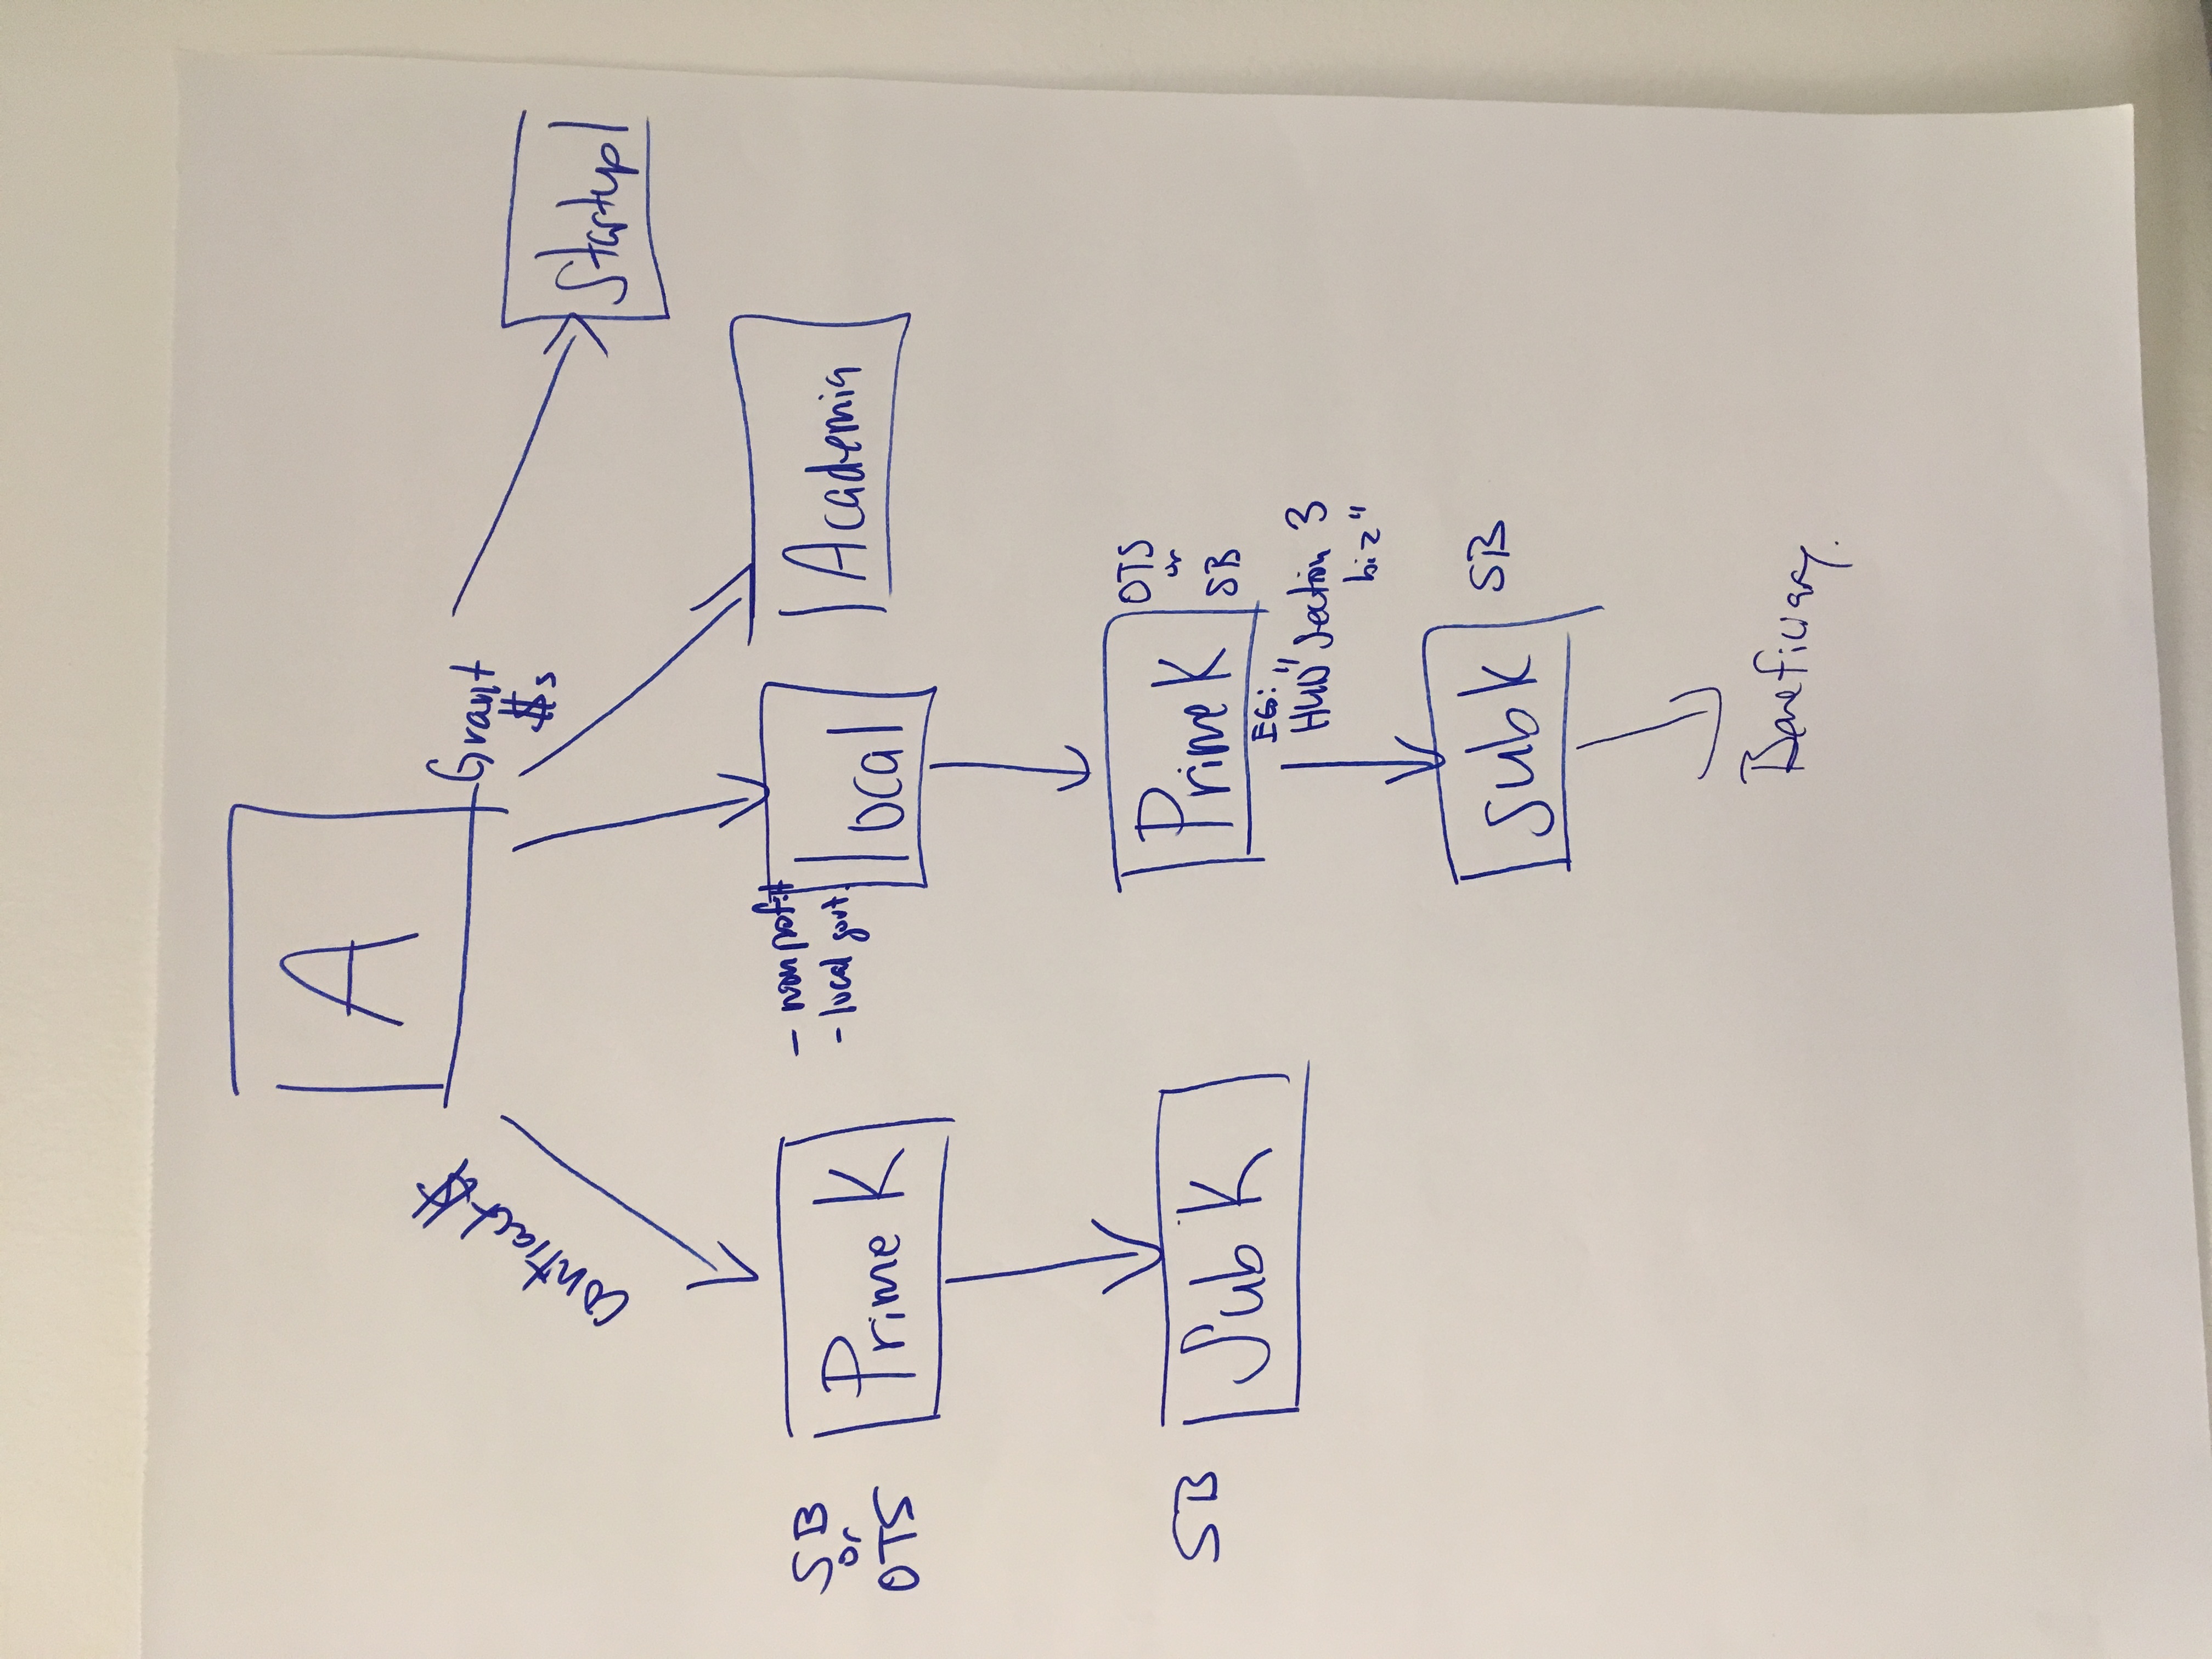 A
contract $
Grant
$s
Startup
SB
or
OTS
Prime K
- nonprofit
- local govt.
local
Academia
SB
Sub K
Prime K
OTS
or
SB
EG:
HUD "Section 3
biz"
Sub K
SB
Beneficiary.